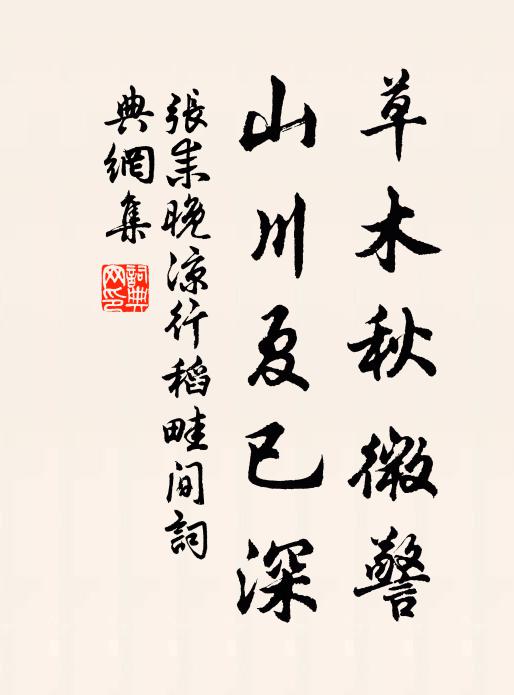 草木秋微警
山川夏已深
張耒晚涼行稻畦間詞
典網集
詞典网印